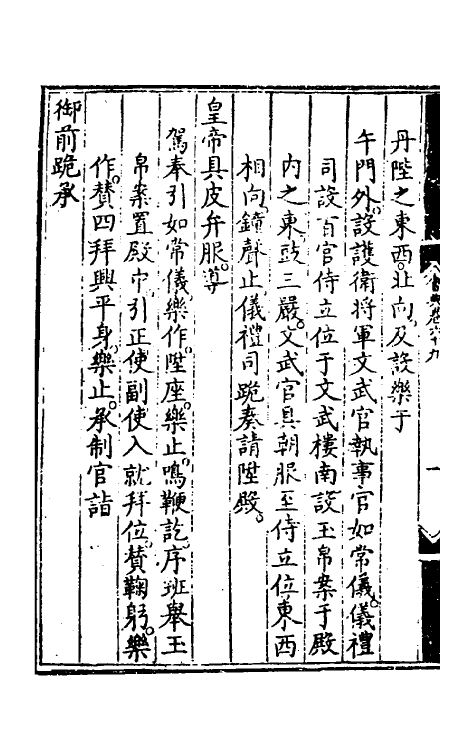 丹陛之東西。北向。及設樂于
午門外。設護衛將軍文武官執事官如常儀。儀禮
司設百官侍立位于文武樓南設玉帛案于殿
内之東。鼓三嚴。文武官具朝服至侍立位東西
相向。鐘聲止。儀禮司跪奏請陞殿。
皇帝具皮弁服。導
駕奉引如常儀。樂作。陞座。樂止。鳴鞭訖。序班舉玉
帛案置殿中。引正使副使入就拜位。賛鞠躬。樂
作。賛四拜興平身。樂止。承制官詣
御前跪承